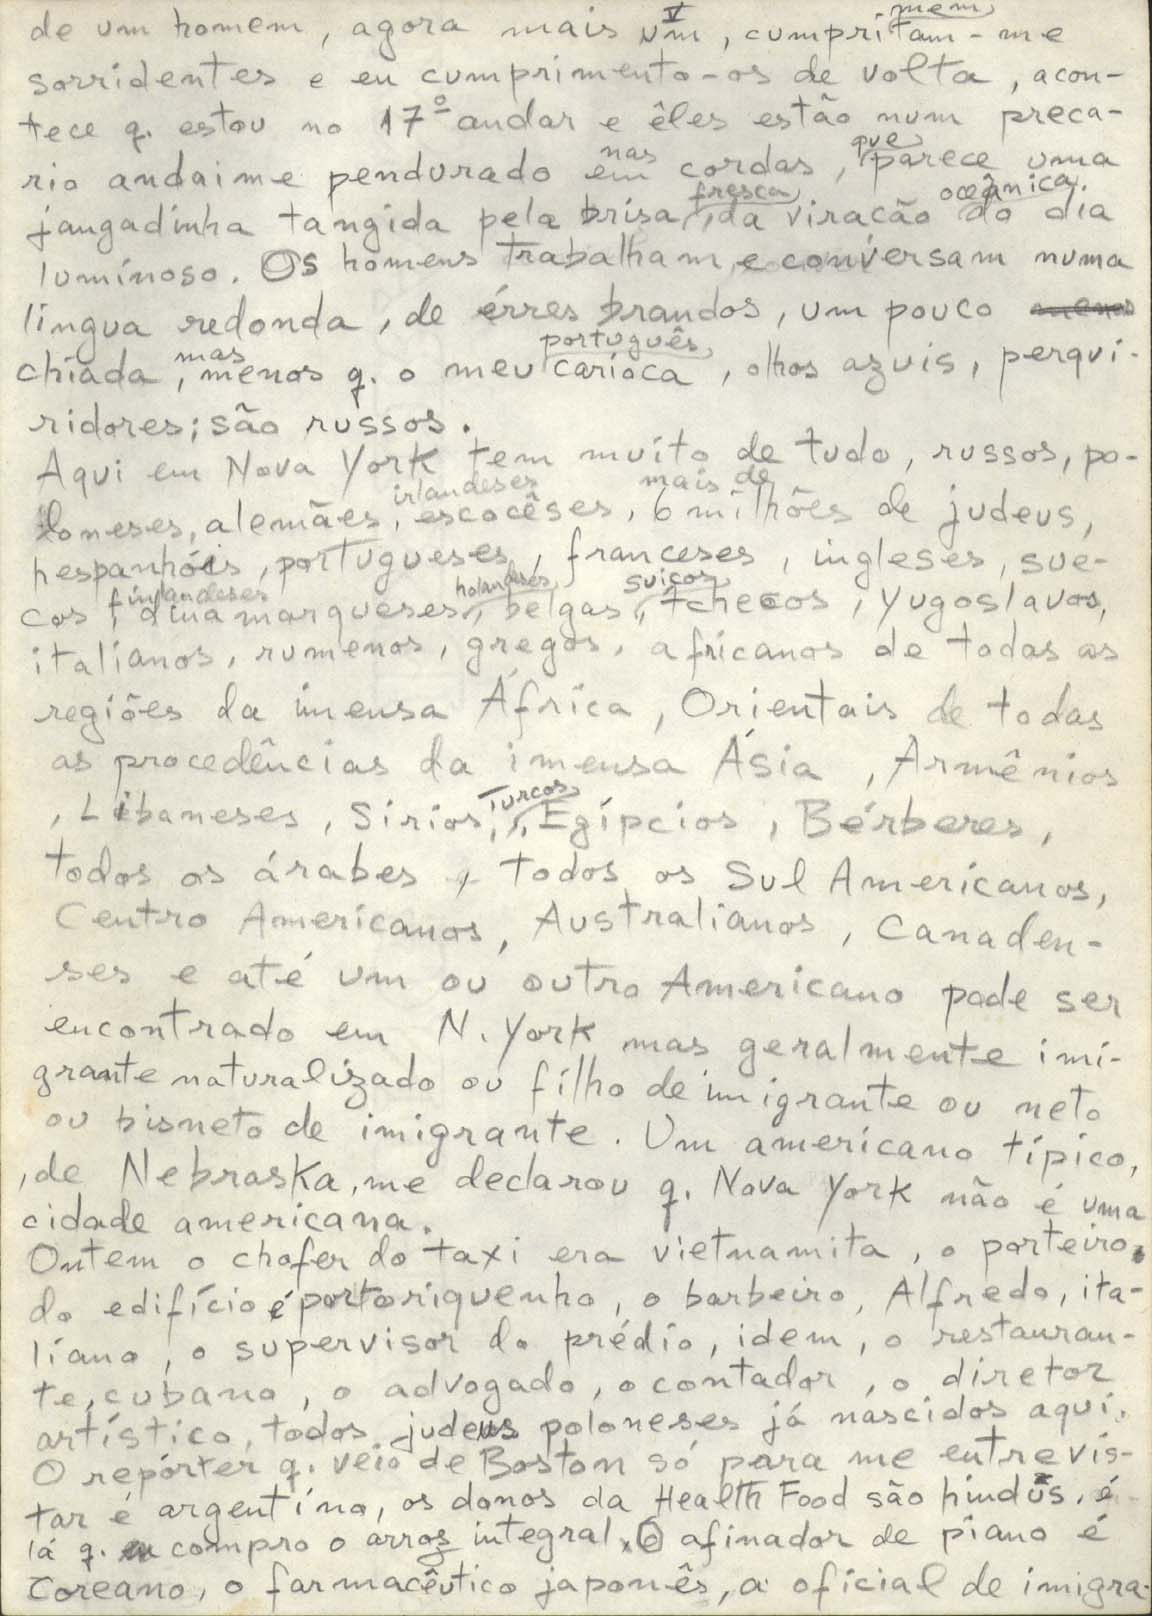 de um homem, agora mais um, cumprimentam-me
sorridentes e eu cumprimento-os de volta, acon-
tece q. estou no 17º andar e êles estão num preca-
rio andaime pendurado nas cordas, que parece uma
jangadinha tangida pela brisa fresca, da viração oceânica do dia
luminoso. Os homens trabalham e conversam numa
lingua redonda, de érres brandos, um pouco
chiada, mas menos q. o meu português carioca, olhos azuis, perqui-
ridores; são russos.
Aqui em Nova York tem muito de tudo, russos, po-
loneses, alemães, irlandeses, escocêses, mais de 6 milhões de judeus,
hespanhóis, portugueses, franceses, ingleses, sue-
cos, finlandeses, dinamarqueses, holandeses, belgas, suiços, tchecos, yugoslavos,
italianos, rumenos, gregos, africanos de todas as
regiões da imensa África, Orientais de todas
as procedências da imensa Ásia, Armênios
, Libaneses, Sirios, Turcos, Egípcios, Bérberes,
todos os árabes, todos os Sul Americanos,
Centro Americanos, Australianos, Canaden-
ses e até um ou outro Americano pode ser
encontrado em N. York mas geralmente imi-
grante naturalizado ou filho de imigrante ou neto
ou bisneto de imigrante. Um americano típico,
, de Nebraska, me declarou q. Nova York não é uma
cidade americana.
Ontem o chofer do taxi era vietnamita, o porteiro
do edifício é portoriquenho, o barbeiro, Alfredo, ita-
liano, o supervisor do prédio, idem, o restauran-
te, cubano, o advogado, o contador, o diretor
artístico, todos judeus poloneses já nascidos aqui.
O repórter q. veio de Boston só para me entrevis-
tar é argentino, os donos da Health Food são hindús, é
lá q. compro o arroz integral, O afinador de piano é
Coreano, o farmacêutico japonês, a oficial de imigra-